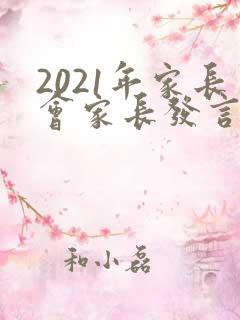 2021年家长
會家长發言
和小磊